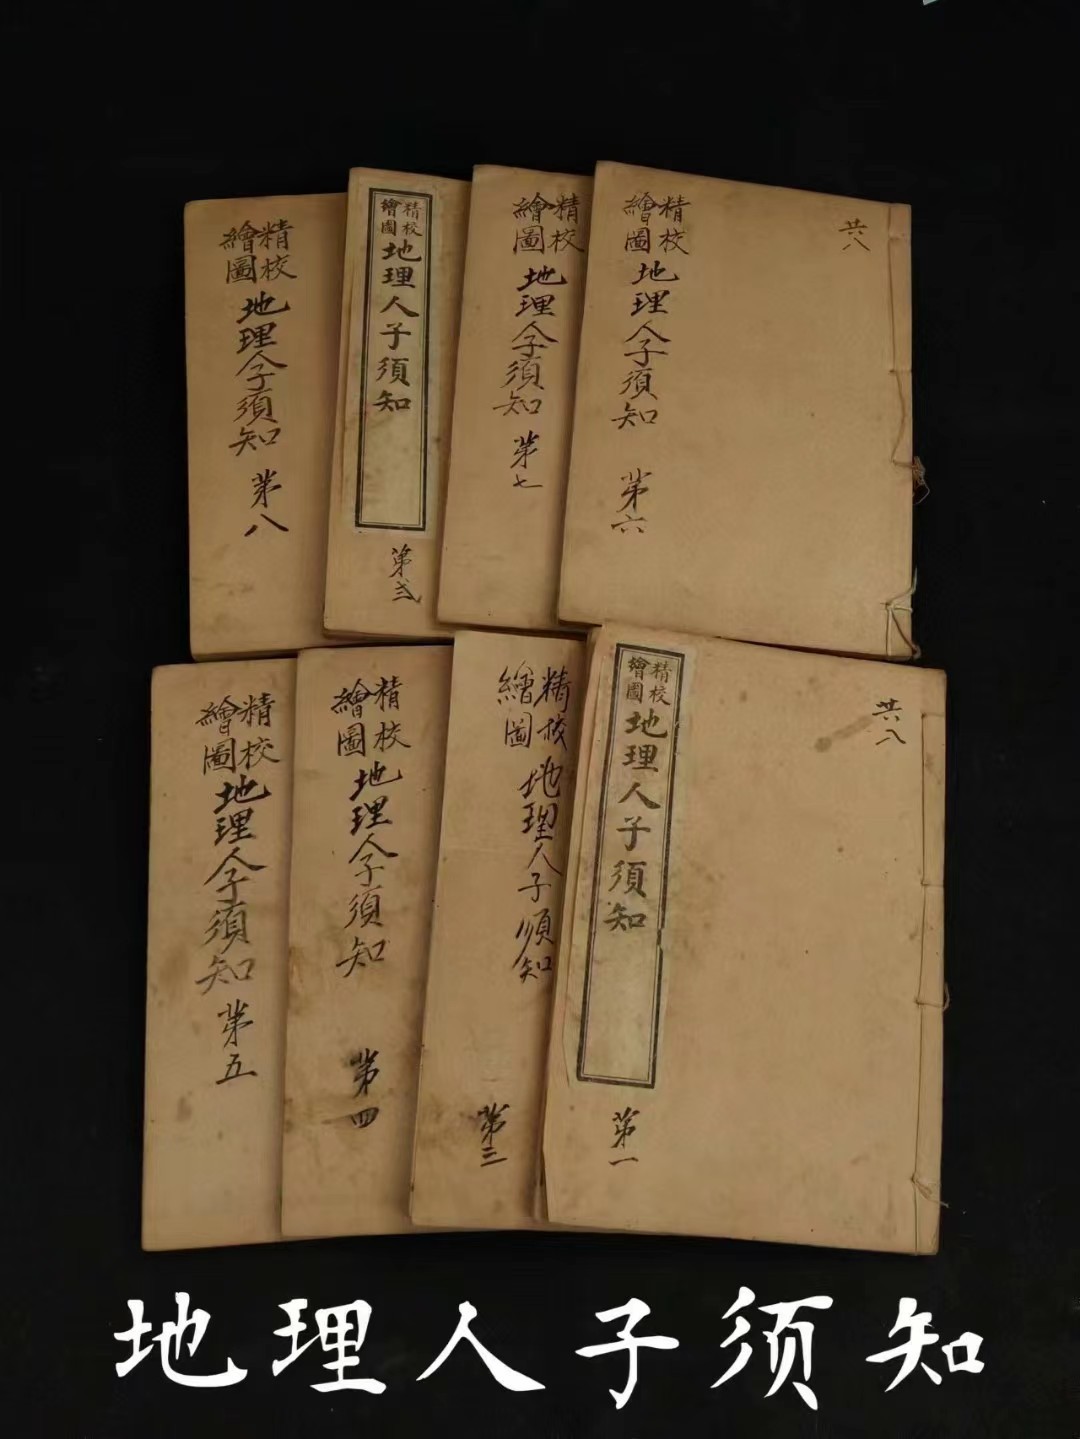 精校
繪圖
地理人子須知
第六
共八
精校
繪圖
地理人子須知
第七
精校
繪圖
地理人子須知
第弍
精校
繪圖
地理人子須知
第八
精校
繪圖
地理人子須知
第一
共八
精校
繪圖
地理人子須知
第三
精校
繪圖
地理人子須知
第四
精校
繪圖
地理人子須知
第五
地理人子须知